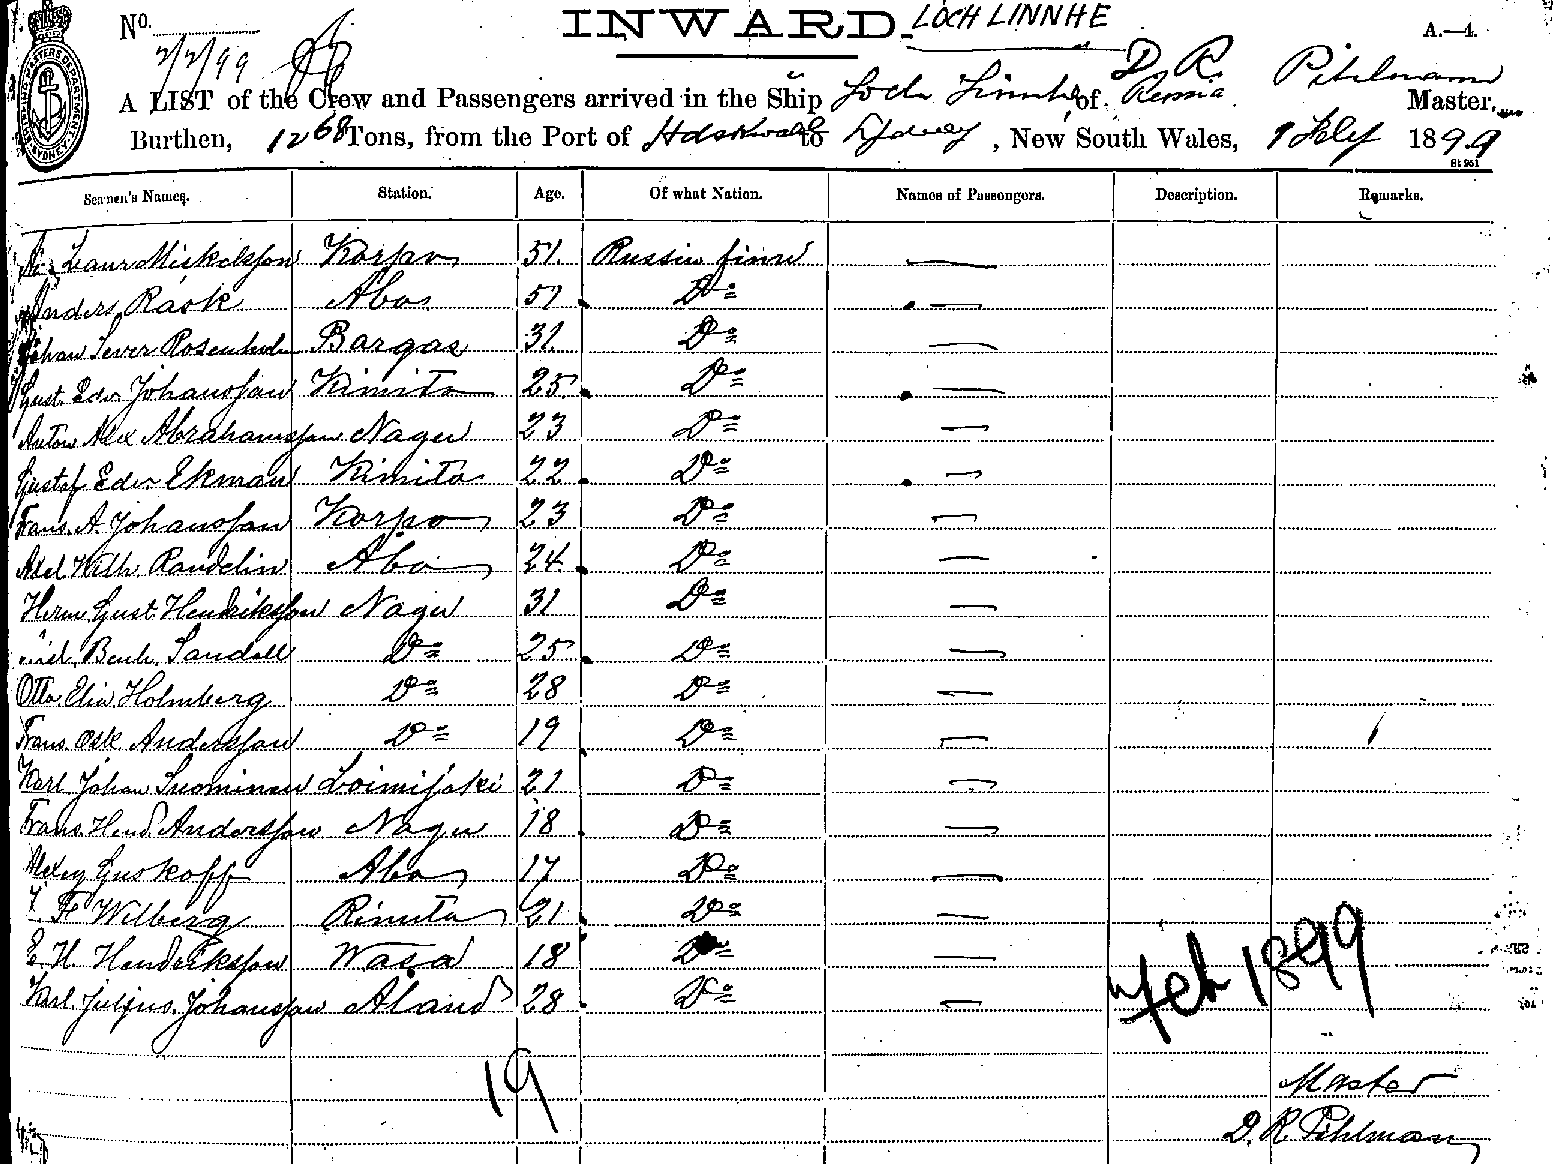 No. INWARD. LOCH LINNHE A.—4.
2/2/99
D. R. Pihlmann
A LIST of the Crew and Passengers arrived in the Ship Loch Linnhe of Russia Master,
Burthen, 1268 Tons, from the Port of to Sydney, New South Wales, 1 Feby 1899
Seamen's Names. Station. Age. Of what Nation. Names of Passengers. Description. Remarks.
Laur Mickelsson Korpo 51 Russia finn —
Anders Rask Abo 51 Do —
Johan Sever Rosenholm Bargas 31 Do —
Gust. Edv Johansson Kimito 25 Do —
Anton Alex Abrahamsson Nagu 23 Do —
Gustaf Edv Ekman Kimito 22 Do —
Frans. A. Johansson Korpo 23 Do —
Axel Wilh Randelin Abo 24 Do —
Herm Gust Hendriksson Nagu 31 Do —
Sandell Do 25 Do —
Otto Elia Holmberg Do 28 Do —
Frans Osk Andersson Do 19 Do —
Karl Johan Suominen Loimijoki 21 Do —
Frans Hend Andersson Nagu 18 Do —
Alexey Guskoff Abo 17 Do —
F Wilberg Rimito 21 Do —
E. H. Hendriksson Wasa 18 Do —
Karl Julius Johansson Aland 28 Do —
Feb 1899
19
Master
D. R. Pihlman